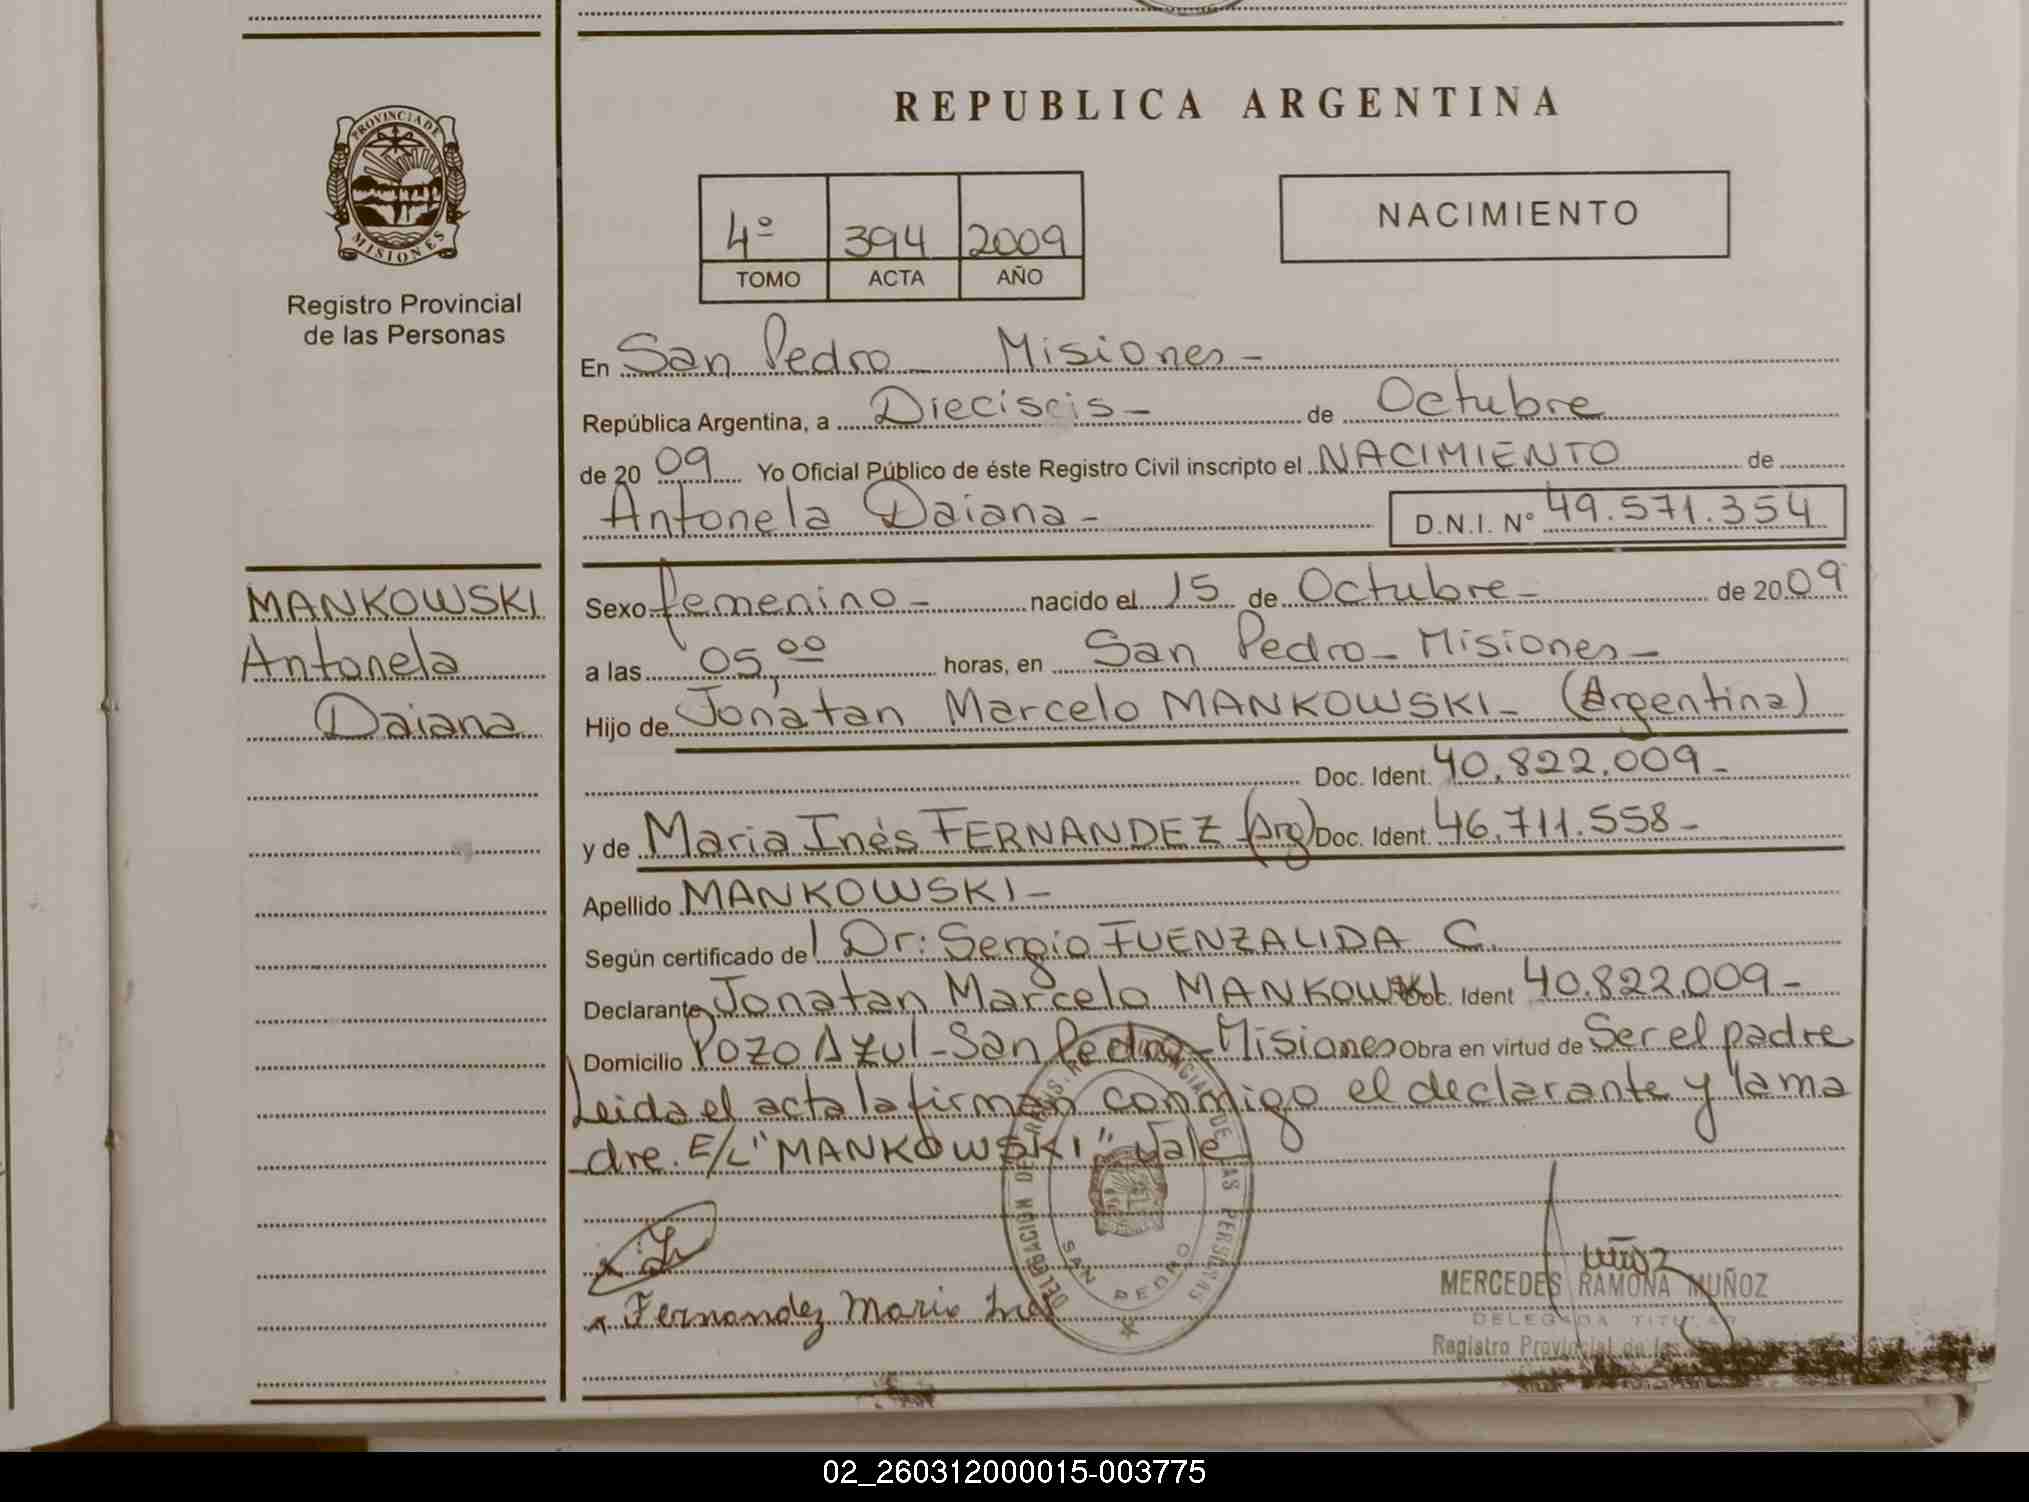 PROVINCIA DE
MISIONES
Registro Provincial
de las Personas
MANKOWSKI
Antonela
Daiana
REPUBLICA ARGENTINA
4º 394 2009
TOMO ACTA AÑO
NACIMIENTO
En San Pedro - Misiones -
República Argentina, a Dieciseis - de Octubre
de 20 09 Yo Oficial Público de éste Registro Civil inscripto el NACIMIENTO de
Antonela Daiana - D.N.I. Nº 49.571.354
Sexo femenino - nacido el 15 de Octubre - de 20 09
a las 05,00 horas, en San Pedro - Misiones -
Hijo de Jonatan Marcelo MANKOWSKI - (Argentina)
Doc. Ident. 40.822.009 -
y de Maria Inés FERNANDEZ (Arg) Doc. Ident. 46.711.558 -
Apellido MANKOWSKI -
Según certificado de Dr: Sergio FUENZALIDA C.
Declarante Jonatan Marcelo MANKOWSKI Doc. Ident 40.822.009 -
Domicilio Pozo Azul - San Pedro - Misiones Obra en virtud de Ser el padre
Leida el acta la firman conmigo el declarante y la ma
dre. E/L "MANKOWSKI" Vale
DELEGACION DE REGIS. PROVINCIAL DE LAS PERSONAS
SAN PEDRO
x Fernandez Maria Ines
Muñoz
MERCEDES RAMONA MUÑOZ
DELEGADA TITULAR
Registro Provincial de las
02_260312000015-003775